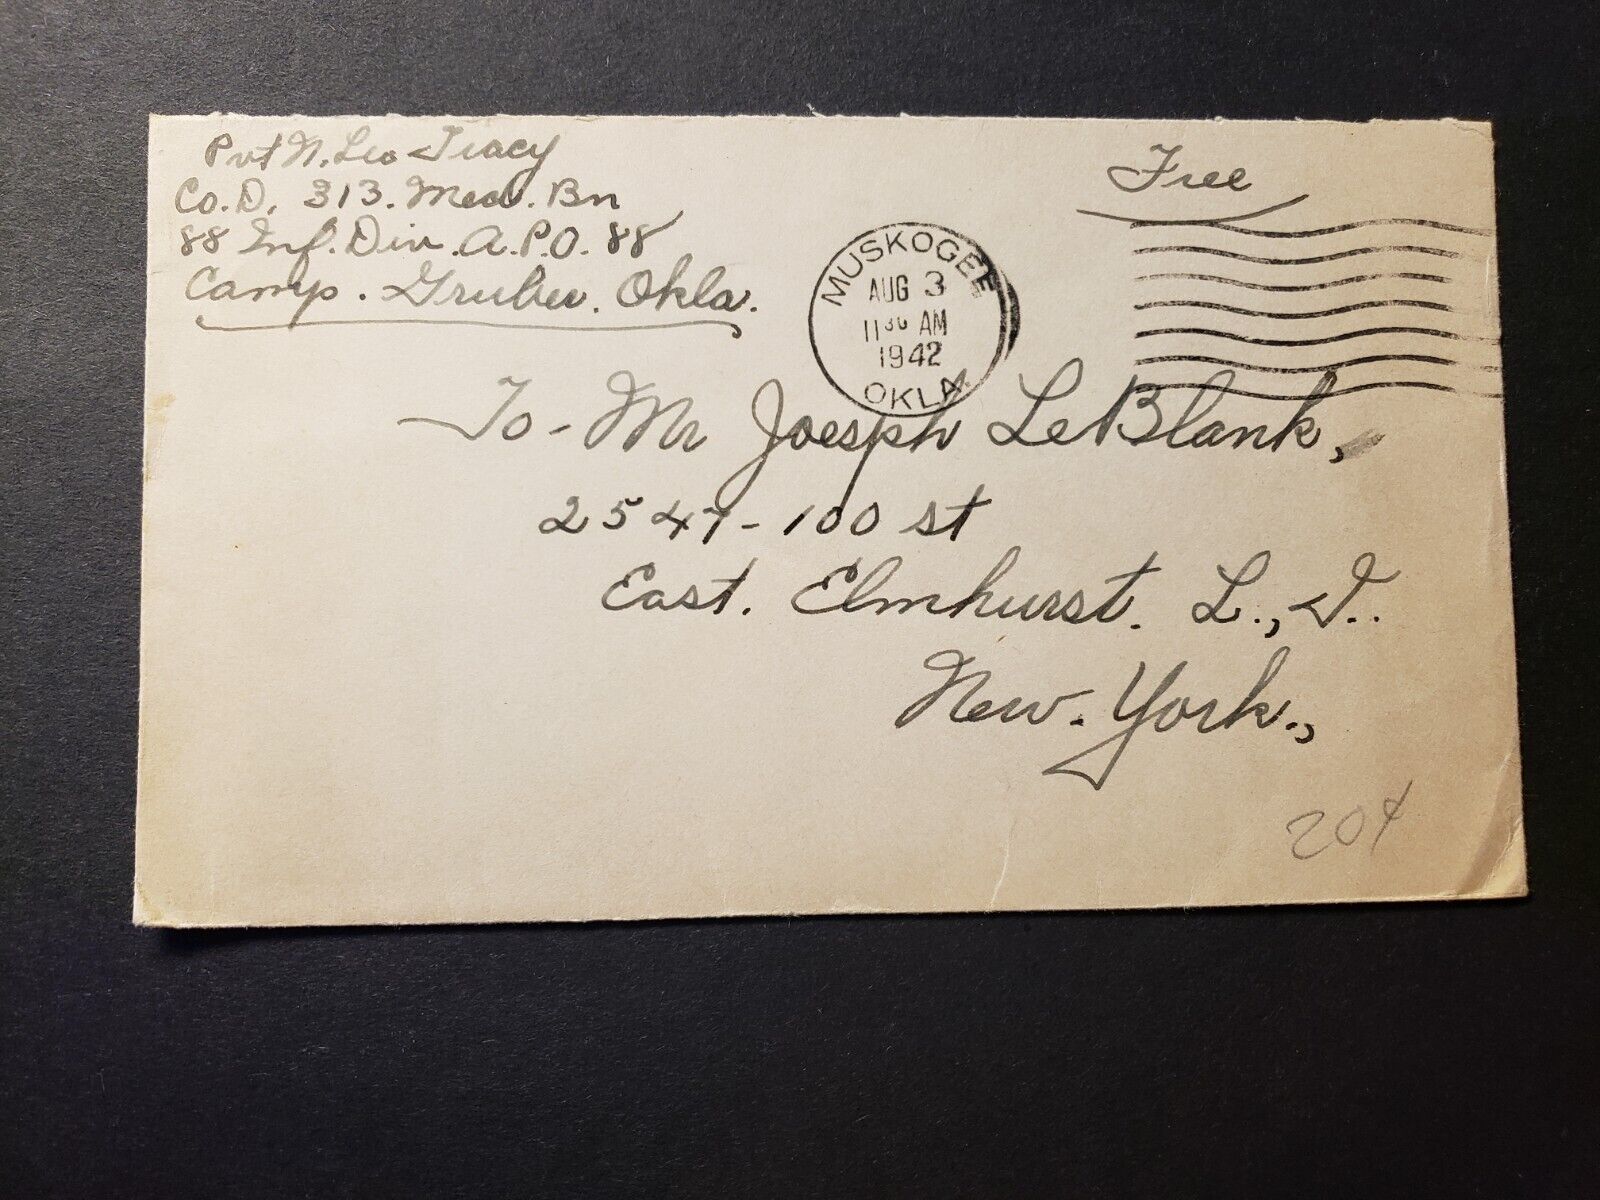 Pvt N. Leo Tracy
Co. D. 313. Med. Bn
88 Inf. Div. A.P.O. 88
Camp. Gruber. Okla.
Free
MUSKOGEE
AUG 3
11 30 AM
1942
OKLA.
To - Mr Joesph LeBlank,
2547 - 100 st
East. Elmhurst. L., I..
New. York.,
20¢